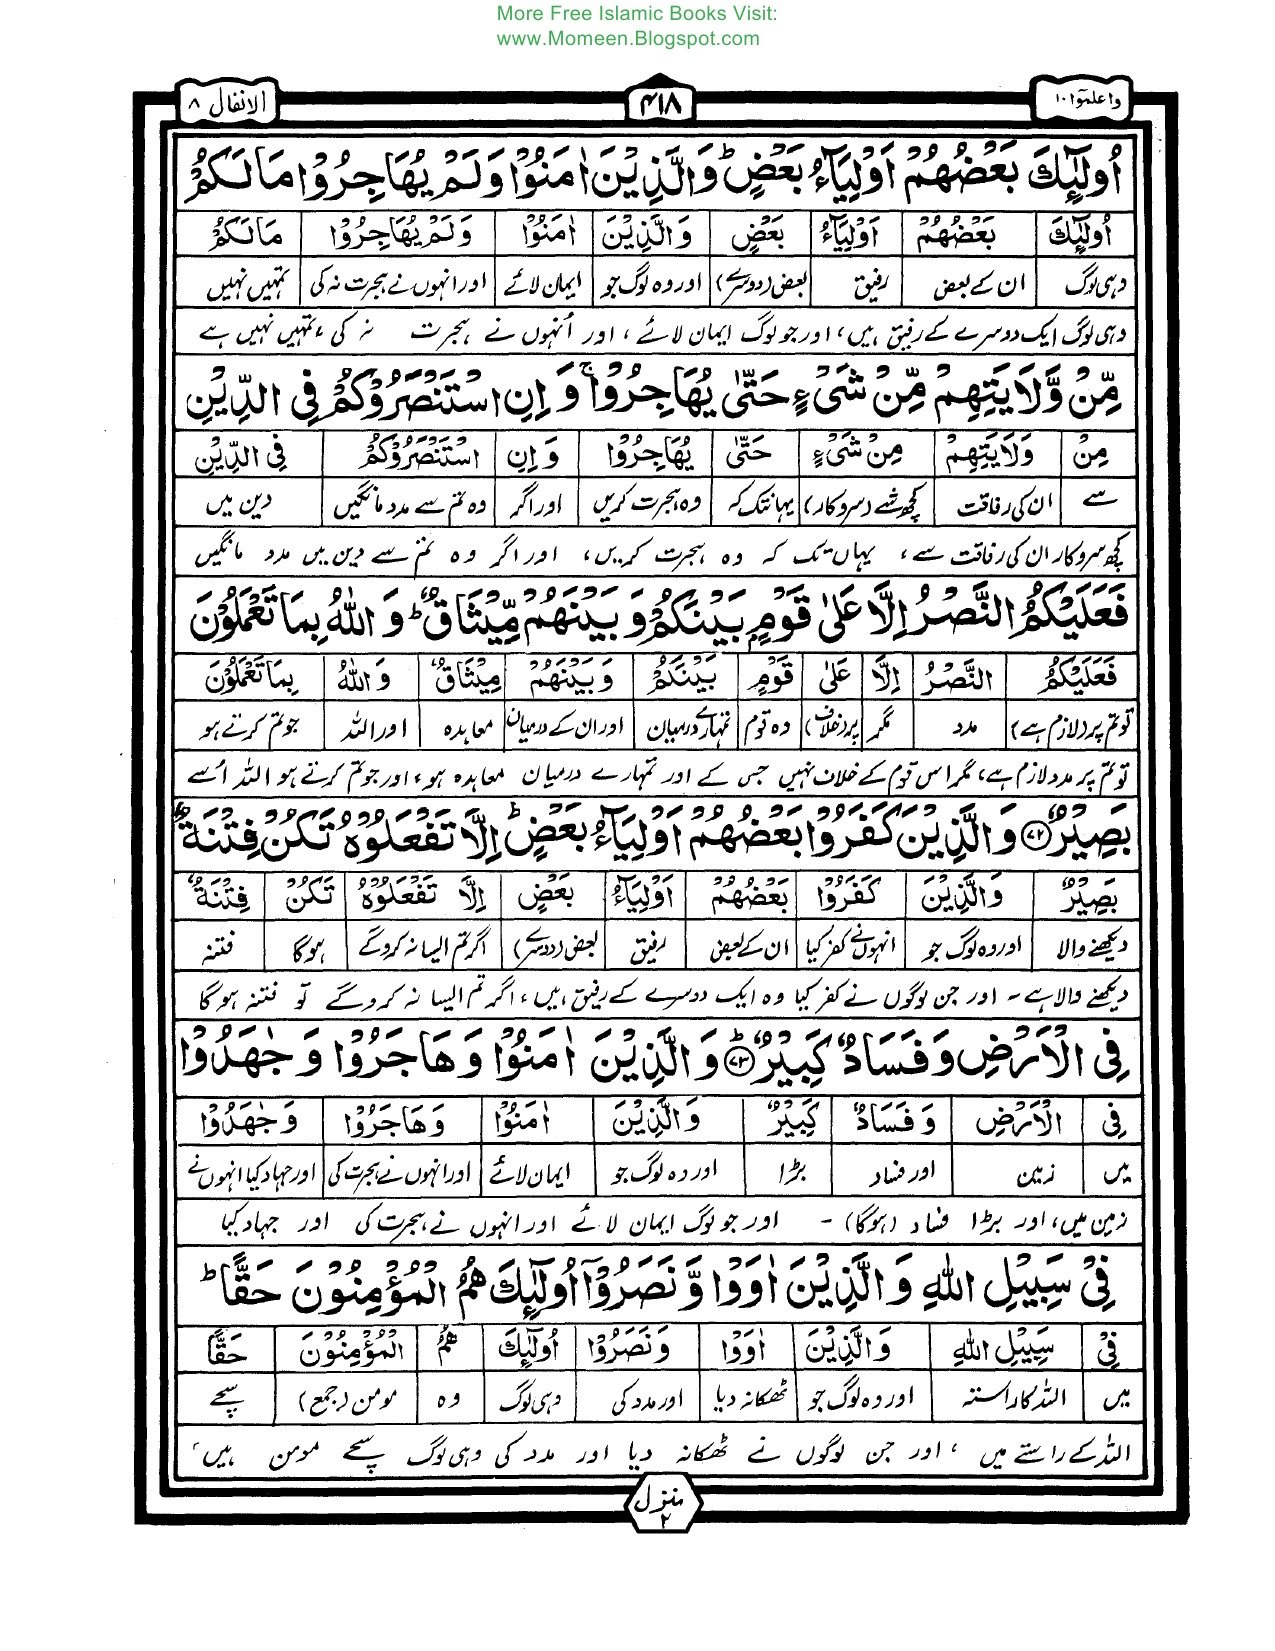 More Free Islamic Books Visit:
www.Momeen.Blogspot.com
واعلموا ١٠ ٤١٨ الانفال ٨
اُولٰٓئِكَ بَعْضُهُمْ اَوْلِیَآءُ بَعْضٍ ؕ وَالَّذِیْنَ اٰمَنُوْا وَلَمْ یُهَاجِرُوْا مَا لَكُمْ
اُولٰٓئِكَ بَعْضُهُمْ اَوْلِیَآءُ بَعْضٍ وَالَّذِیْنَ اٰمَنُوْا وَلَمْ یُهَاجِرُوْا مَالَكُمْ
وہی لوگ ان کے بعض رفیق بعض (دوسرے) اور وہ لوگ جو ایمان لائے اور انہوں نے ہجرت نہ کی تمہیں نہیں
وہی لوگ ایک دوسرے کے رفیق ہیں، اور جو لوگ ایمان لائے، اور اُنہوں نے ہجرت نہ کی، تمہیں نہیں ہے
مِّنْ وَّلَایَتِهِمْ مِّنْ شَیْءٍ حَتّٰی یُهَاجِرُوْا ۚ وَاِنِ اسْتَنْصَرُوْكُمْ فِی الدِّیْنِ
مِنْ وَلَایَتِهِمْ مِنْ شَیْءٍ حَتّٰی یُهَاجِرُوْا وَاِنِ اسْتَنْصَرُوْكُمْ فِی الدِّیْنِ
سے ان کی رفاقت کچھ شے (سروکار) یہانتک کہ وہ ہجرت کریں اور اگر وہ تم سے مدد مانگیں دین میں
کچھ سروکار ان کی رفاقت سے، یہاں تک کہ وہ ہجرت کریں، اور اگر وہ تم سے دین میں مدد مانگیں
فَعَلَیْكُمُ النَّصْرُ اِلَّا عَلٰی قَوْمٍۭ بَیْنَكُمْ وَبَیْنَهُمْ مِّیْثَاقٌ ؕ وَاللّٰهُ بِمَا تَعْمَلُوْنَ
فَعَلَیْكُمُ النَّصْرُ اِلَّا عَلٰی قَوْمٍ بَیْنَكُمْ وَبَیْنَهُمْ مِیْثَاقٌ وَاللّٰهُ بِمَا تَعْمَلُوْنَ
تو تم پر (لازم ہے) مدد مگر پر (خلاف) وہ قوم تمہارے درمیان اور ان کے درمیان معاہدہ اور اللہ جو تم کرتے ہو
تو تم پر مدد لازم ہے، مگر اس قوم کے خلاف نہیں جس کے اور تمہارے درمیان معاہدہ ہو، اور جو تم کرتے ہو اللہ اُسے
بَصِیْرٌ ﴿٧٢﴾ وَالَّذِیْنَ كَفَرُوْا بَعْضُهُمْ اَوْلِیَآءُ بَعْضٍ ؕ اِلَّا تَفْعَلُوْهُ تَكُنْ فِتْنَةٌ
بَصِیْرٌ وَالَّذِیْنَ كَفَرُوْا بَعْضُهُمْ اَوْلِیَآءُ بَعْضٍ اِلَّا تَفْعَلُوْهُ تَكُنْ فِتْنَةٌ
دیکھنے والا اور وہ لوگ جو انہوں نے کفر کیا ان کے بعض رفیق بعض (دوسرے) اگر تم ایسا نہ کروگے ہوگا فتنہ
دیکھنے والا ہے۔ اور جن لوگوں نے کفر کیا وہ ایک دوسرے کے رفیق ہیں، اگر تم ایسا نہ کروگے تو فتنہ ہوگا
فِی الْاَرْضِ وَفَسَادٌ كَبِیْرٌ ﴿٧٣﴾ وَالَّذِیْنَ اٰمَنُوْا وَهَاجَرُوْا وَجٰهَدُوْا
فِی الْاَرْضِ وَفَسَادٌ كَبِیْرٌ وَالَّذِیْنَ اٰمَنُوْا وَهَاجَرُوْا وَجٰهَدُوْا
میں زمین اور فساد بڑا اور وہ لوگ جو ایمان لائے اور انہوں نے ہجرت کی اور جہاد کیا انہوں نے
زمین میں، اور بڑا فساد (ہوگا)۔ اور جو لوگ ایمان لائے اور انہوں نے ہجرت کی اور جہاد کیا
فِیْ سَبِیْلِ اللّٰهِ وَالَّذِیْنَ اٰوَوْا وَّنَصَرُوْۤا اُولٰٓئِكَ هُمُ الْمُؤْمِنُوْنَ حَقًّا ؕ
فِیْ سَبِیْلِ اللّٰهِ وَالَّذِیْنَ اٰوَوْا وَنَصَرُوْا اُولٰٓئِكَ هُمُ الْمُؤْمِنُوْنَ حَقًّا
میں اللہ کا راستہ اور وہ لوگ جو ٹھکانہ دیا اور مدد کی وہی لوگ وہ مومن (جمع) سچے
اللہ کے راستے میں، اور جن لوگوں نے ٹھکانہ دیا اور مدد کی وہی لوگ سچے مومن ہیں،
منزل ٢